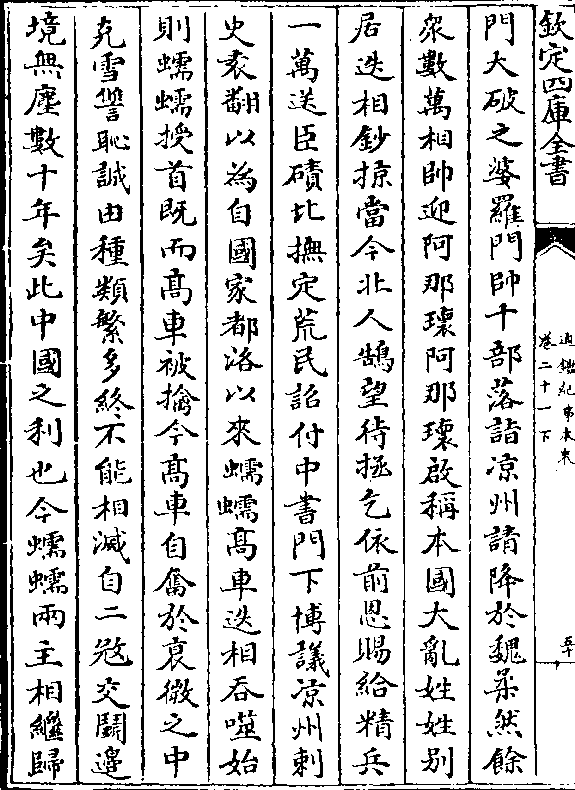 欽定四庫全書
通鑑紀事本末
卷二十一下
五十
門大破之婆羅門帥十部落詣凉州請降於魏柔然餘
衆數萬相帥迎阿那瓌阿那瓌啟稱本國大亂姓姓別
居迭相鈔掠當今北人鵠望待拯乞依前恩賜給精兵
一萬送臣磧北撫定荒民詔付中書門下博議凉州刺
史袁翻以為自國家都洛以來蠕蠕高車迭相吞噬始
則蠕蠕授首既而高車被擒今高車自奮於衰微之中
克雪讐恥誠由種類繁多終不能相滅自二敵交鬭邊
境無塵數十年矣此中國之利也今蠕蠕兩主相繼歸